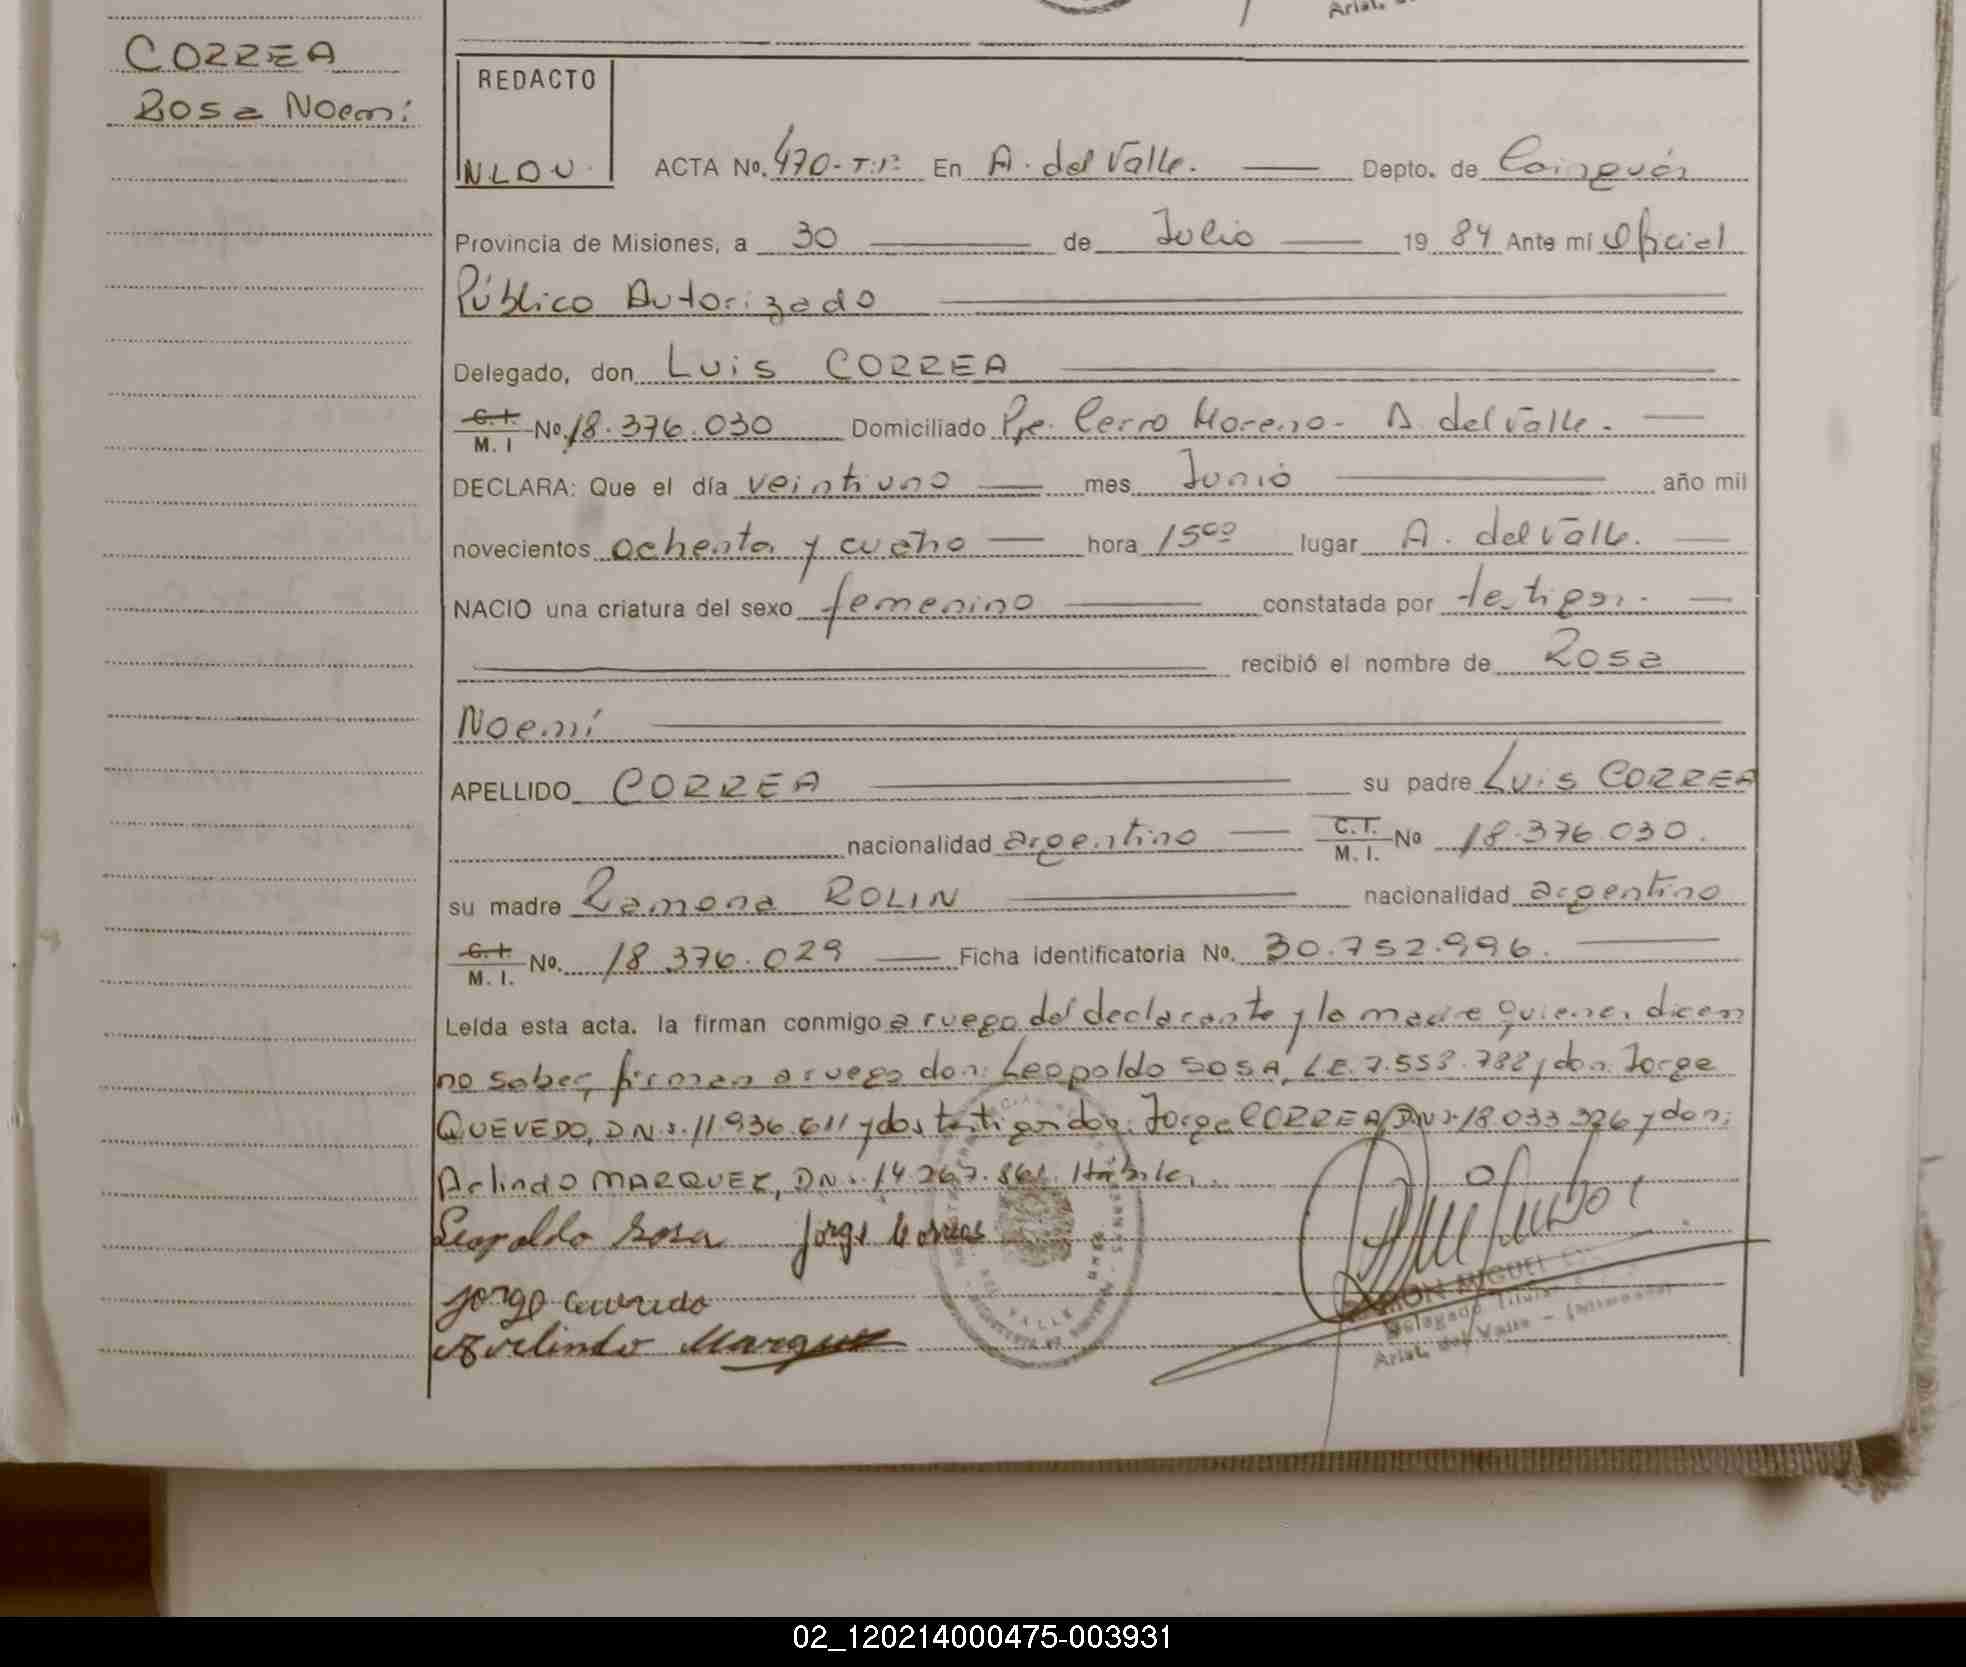 CORREA
Rosa Noemí
REDACTO
NLDV.
ACTA No. 470-T:1º En A. del Valle. Depto. de Cainguás
Provincia de Misiones, a 30 de Julio 19 84 Ante mí Oficial
Público Autorizado
Delegado, don Luis CORREA
C. I. M. I No. 18.376.030 Domiciliado Pje. Cerro Moreno - A. del Valle.
DECLARA: Que el día veintiuno mes Junio año mil
novecientos ochenta y cuatro hora 15:00 lugar A. del Valle.
NACIO una criatura del sexo femenino constatada por testigos.
recibió el nombre de Rosa
Noemí
APELLIDO CORREA su padre Luis CORREA
nacionalidad argentino C. I. M. I. No 18.376.030.
su madre Ramona ROLIN nacionalidad argentino
C. I. M. I. No. 18.376.029 Ficha identificatoria No. 30.752.996.
Leída esta acta. la firman conmigo a ruego del declarante y la madre quienes dicen
no saber, firman a ruego don: Leopoldo SOSA, L.E. 7.553.782, don: Jorge
QUEVEDO, D.N.I. 11.936.611 y dos testigos don: Jorge CORREA, D.N.I. 18.033.326 y don:
Arlindo MARQUEZ, DNI. 14.267.861. Hábiles.
Leopoldo Sosa Jorge Correa
Jorge
Arlindo Marquez
RAMON MIGUEL
Delegado Titular
Arist. del Valle - (Misiones)
DEL VALLE
02_120214000475-003931